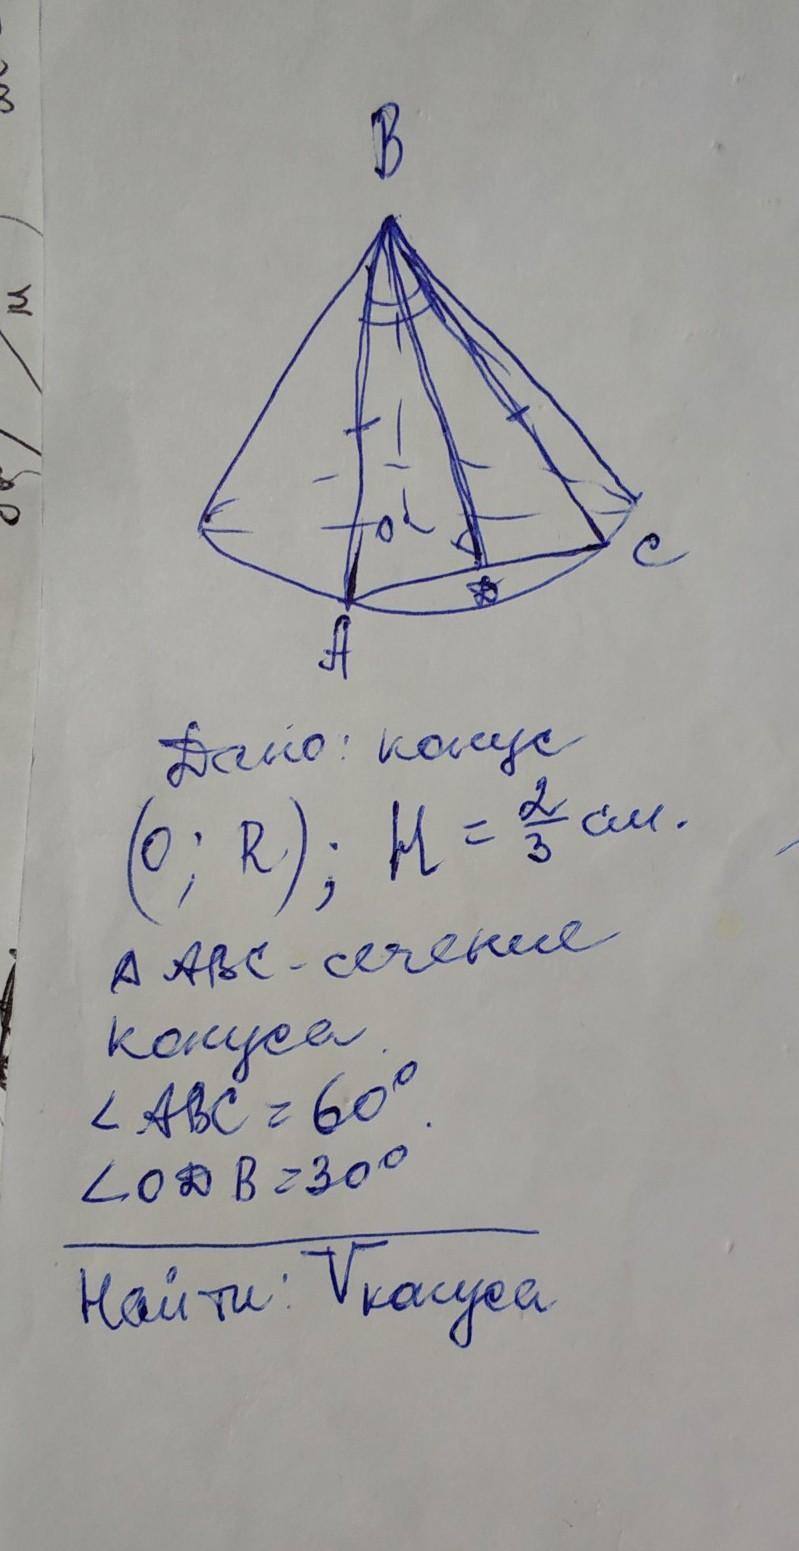 B
O
C
D
A
Дано: конус
(O; R); H = 2/3 см.
Δ ABC - сечение
конуса.
∠ ABC = 60°.
∠ODB=30°
Найти: Vконуса